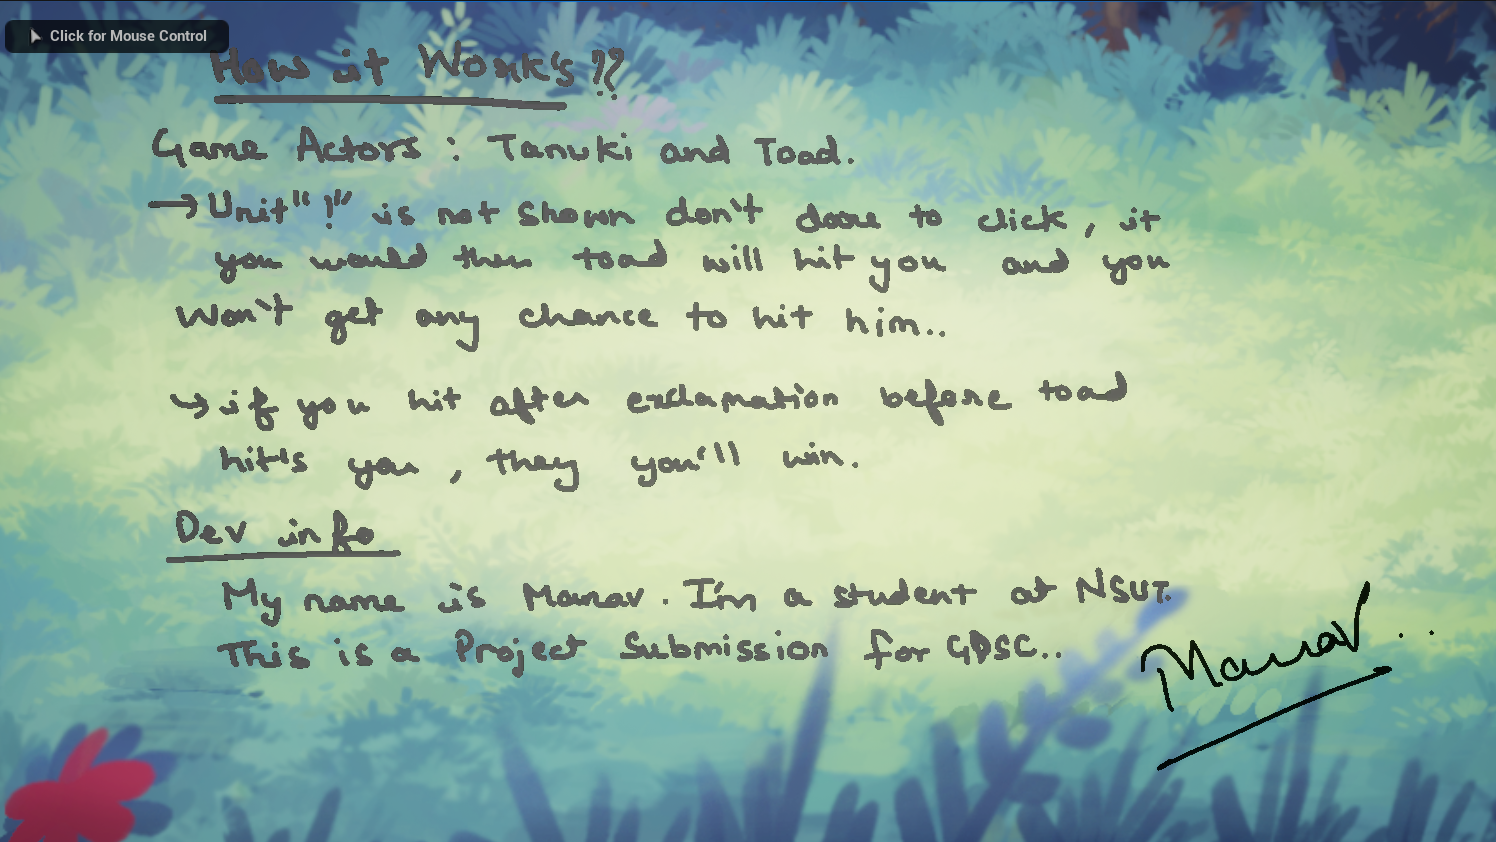 Click for Mouse Control
How it Work's ??
Game Actors : Tanuki and Toad.
→ Unit "!" is not shown don't dare to click, it
you would then toad will hit you and you
Won't get any chance to hit him..
↪ if you hit after exclamation before toad
hit's you, they you'll win.
Dev info
My name is Manav. I'm a student at NSUT.
This is a Project Submission for GDSC..
Manav..